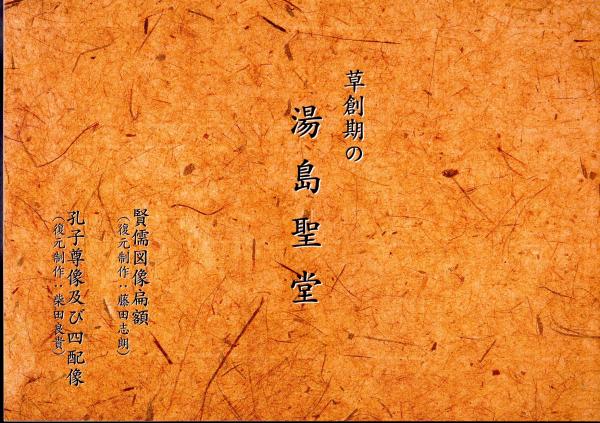 草創期の
湯島聖堂
賢儒図像扁額
（復元制作：藤田志朗）
孔子尊像及び四配像
（復元制作：柴田良貴）